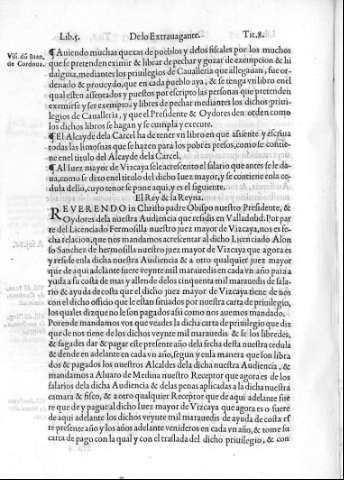 Lib.5. De lo Extrauagante. Tit.8.
Visi. dō Iuan, de Cordoua.
¶ Auiendo muchas quexas de pueblos y delos fiscales por los muchos
que se pretenden eximir & librar de pechar y gozar de exempcion & hi
dalguia, mediantes los priuilegios de Caualleria que allegauan, fue or-
denado & proueydo, que en cada pueblo aya, & se tenga vn libro en el
qual esten assentados y puestos por escripto las personas que pretenden
eximirse y ser exemptos, y libres de pechar mediantes los dichos priui-
legios de Caualleria, y que el Presidente & Oydores den orden como
los dichos libros se hagan y se cumpla y execute.
¶ El Alcayde dela Carcel ha de tener vn libro en que assiente y escriua
todas las limosnas que se hazen para los pobres presos, como se contie
ne enel titulo del Alcayde dela Carcel.
¶ Al juez mayor de Vizcaya se le acrescento el salario que antes se le da
ua, como se dixo enel titulo del dicho Iuez mayor, y se contiene enla ce
dula dello, cuyo tenor se pone aqui, y es el siguiente.
El Rey & la Reyna.
REVERENDO in Christo padre Obispo nuestro Presidente, &
Oydores dela nuestra Audiencia que residis en Valladolid. Por par
te del Licenciado Fermosilla nuestro juez mayor de Vizcaya, nos es fe-
cha relacion, que nos mandamos acrescentar al dicho Licenciado Alon
so Sanchez de hermosilla nuestro juez mayor de Vizcaya que agora es
y reside enla dicha nuestra Audiencia & a otro qualquier juez mayor
que de aqui adelante fuere veynte mil marauedis en cada vn año para a
yuda a su costa de mas y allende delos cincuenta mil marauedis de sala-
rio & ayuda de costa que el dicho juez mayor de Vizcaya tiene de nos
con el dicho officio que le estan situados por nuestra carta de priuilegio,
los quales diz que no le son pagados assi como nos auemos mandado.
Por ende mandamos vos que veades la dicha carta de priuilegio que diz
que de nos tiene de los dichos veynte mil marauedis & se los libredes,
& fagades dar & pagar este presente año dela fecha desta nuestra cedula
& dende en adelante en cada vn año, segun y en la manera que son libra
dos & pagados los nuestros Alcaldes dela dicha nuestra Audiencia, &
mandamos a Aluaro de Medina nuestro Receptor que agora es de los
salarios dela dicha Audiencia & delas penas aplicadas a la dicha nuestra
camara & fisco, & a otro qualquier Receptor que de aqui adelante fue
re que de y pague al dicho Iuez mayor de Vizcaya que agora es o fuere
de aqui adelante los dichos veynte mil marauedis de ayuda de costa es
te presente año y los años adelante venideros en cada vn año, & tome su
carta de pago con la qual y con el traslado del dicho priuilegio, & con